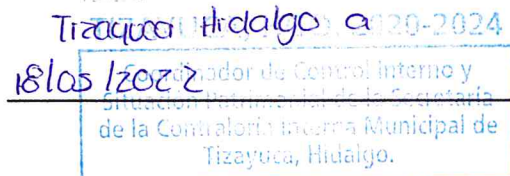 Tizayuca Hidalgo a
2020-2024
18/05/2022
Coordinador de Control Interno y
Situación Patrimonial de la Secretaría
de la Contraloría Interna Municipal de
Tizayuca, Hidalgo.